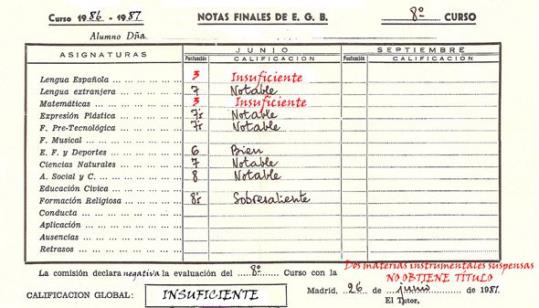 Curso 1986 - 1987 NOTAS FINALES DE E. G. B. 8º CURSO
Alumno Dña.
ASIGNATURAS JUNIO SEPTIEMBRE
Puntuación CALIFICACION Puntuación CALIFICACION
Lengua Española ... 3 Insuficiente
Lengua extranjera ... 7 Notable
Matemáticas ... 3 Insuficiente
Expresión Plástica ... 7'5 Notable
F. Pre-Tecnológica ... 7'5 Notable
F. Musical ...
E. F. y Deportes ... 6 Bien
Ciencias Naturales ... 7 Notable
A. Social y C. ... 8 Notable
Educación Cívica ...
Formación Religiosa ... 8'5 Sobresaliente
Conducta ...
Aplicación ...
Ausencias ...
Retrasos ...
Dos materias instrumentales suspensas
La comisión declara negativa la evaluación del 8º Curso con la NO OBTIENE TÍTULO
CALIFICACION GLOBAL: INSUFICIENTE Madrid, 26 de junio de 1987.
El Tutor,